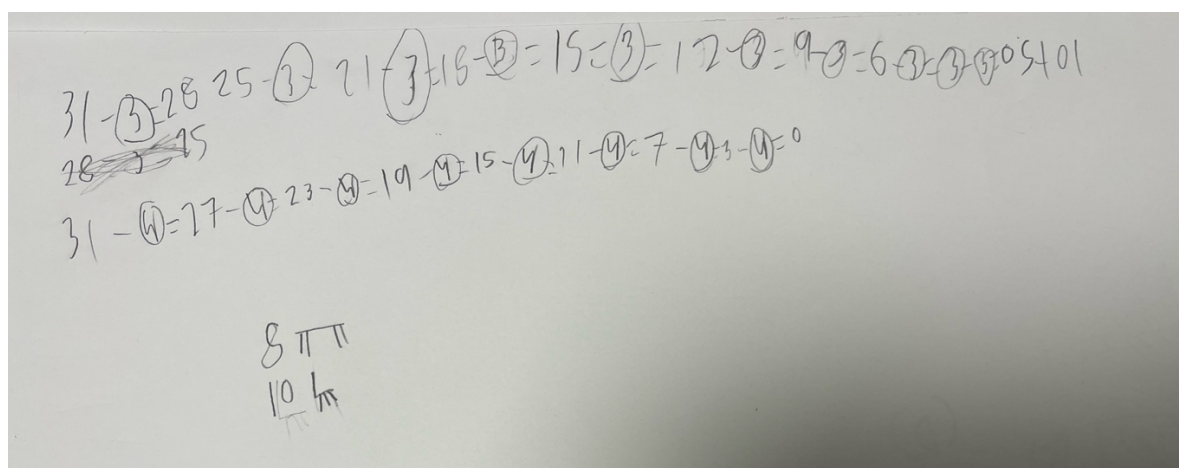 31-3=28 25-3- 21-3=18-3=15=3=12-3=9-3=6-3=3-3=0 stol
31-4=27-4=23-4=19-4=15-4=11-4=7-4=3-4=0
8
10